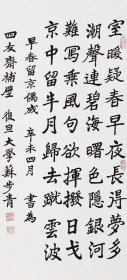 室暖疑春早夜長浔夢多
潮聲連碧海曙色隐銀河
難寫乘風句欲揮撥日戈
月歸去蹴雲波
早春留京偶成 辛未四月 書為
四友齋補壁 復旦大學蘇步青